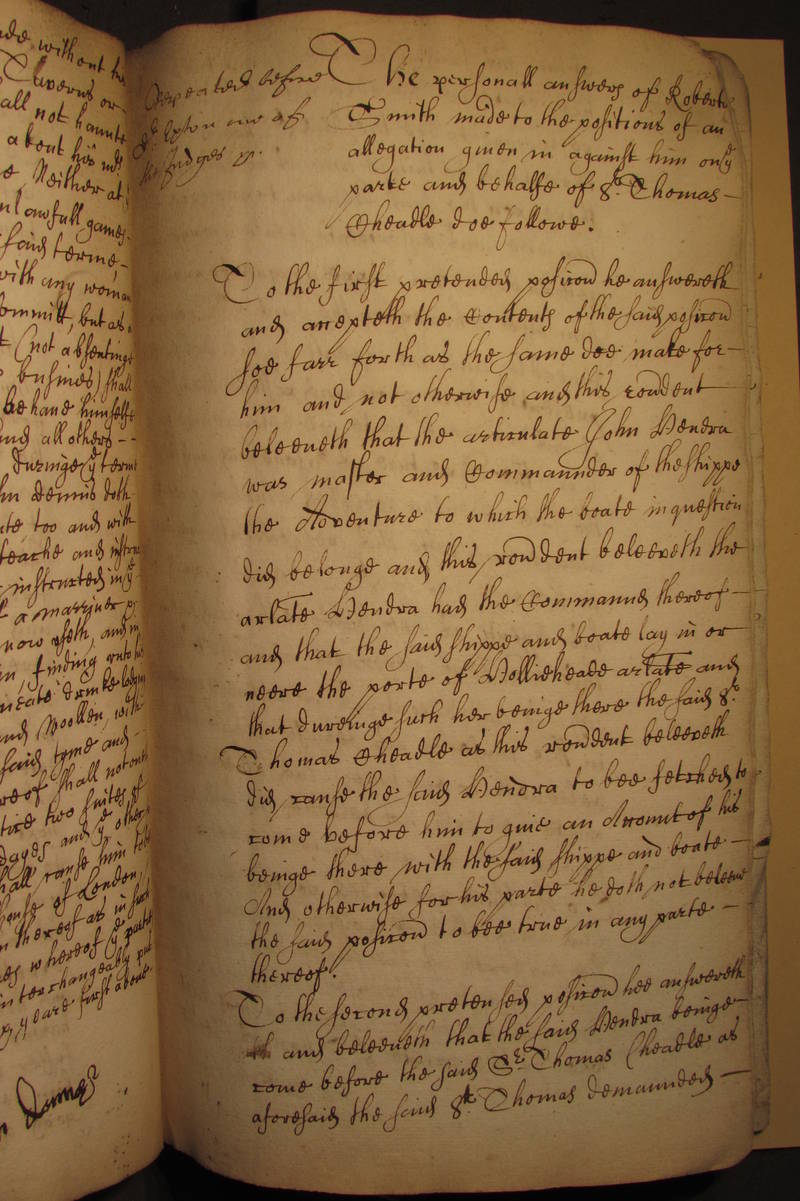 ade without the
Taverns or
all not haunte
about his m
e, Neither at
nlawfull games
said terme
with any woman
Committ, but as
t (not absentinge
busines) shall
behave himselfe
and all others
Duringe yͤ terme
hn Dennis doth
ute too and with
teache and instru
instructed in yͤ
t a marryner
now useth, and in
n, finding unto h
meate drinke lodging
and Woollen, with
said tyme and
reof shall not on
tire two suites of
dayes and yͤ other
hall cause him to b
house of London,
n thereof as in such
es whereof yͤ partys
interchangeably put
yeare first above
Repeated before
Dr. Upton one of
the Judges
The personall answers of Roberte
Smith made to the positions of an
allegation given in against him on yͤ
parte and behalfe of Sr. Thomas
Cheadle doe followe.
To the first pretended posicon he answereth
and accepteth the Contents of the said posicon
soe farr forth as the same doe make for
him and not otherwise and this rondent
beleeveth that the articulate John Hendra
was master and Commaunder of the shippe
the Adventure to which the boate in question
did belonge and this rondent beleeveth the
arlate Hendra had the Commannd thereof
and that the said shippe and boate lay in or
neere the porte of Hollieheade arlate and
that dureinge such her beinge there the said Sr.
Thomas Cheadle as this rondent beleeveth
did cause the said Hendra to bee fetched to
come before him to give an Accomt of his
beinge there with the said shippe and boate
And otherwise for his parte he doth not beleeve
the said posicon to bee true in any parte
thereof.
To the second pretensed posicon hee answereth
and beleeveth that the said Hendra beinge
come before the said Sr. Thomas Cheadle as
aforesaid the said Sr. Thomas demaunded